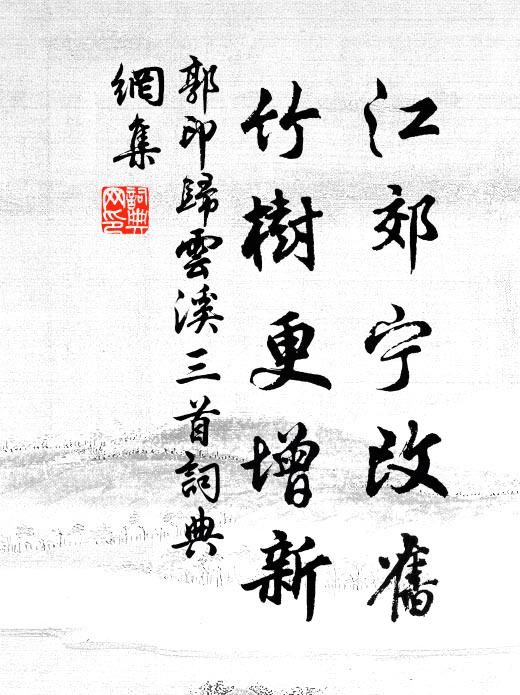 江郊宁改舊
竹樹更增新
郭印歸雲溪三首詞典
網集
詞典
网印